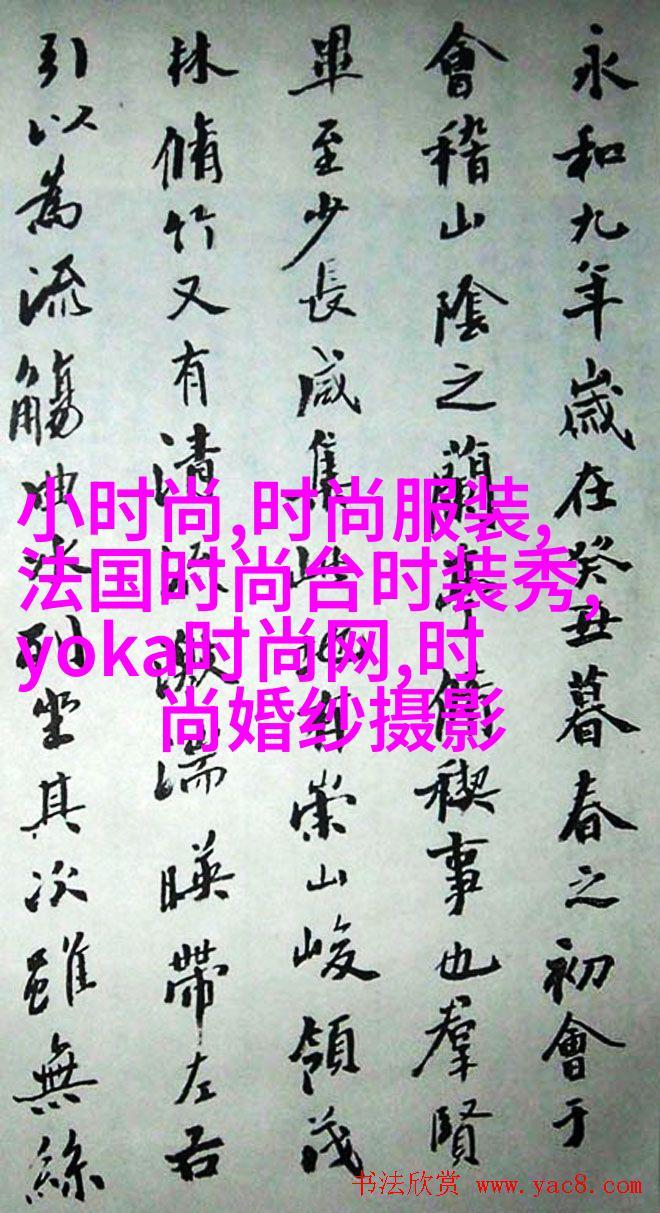 永和九年歲在癸丑暮春之初會于
會稽山陰之蘭亭脩稧事也羣賢
畢至少長咸集此地有崇山峻領茂
林脩竹又有清流激湍暎帶左右
引以為流觴曲水列坐其次雖無絲
小时尚,时尚服装,
法国时尚台时装秀,
yoka时尚网,时
尚婚纱摄影
书法欣赏 www.yac8.com